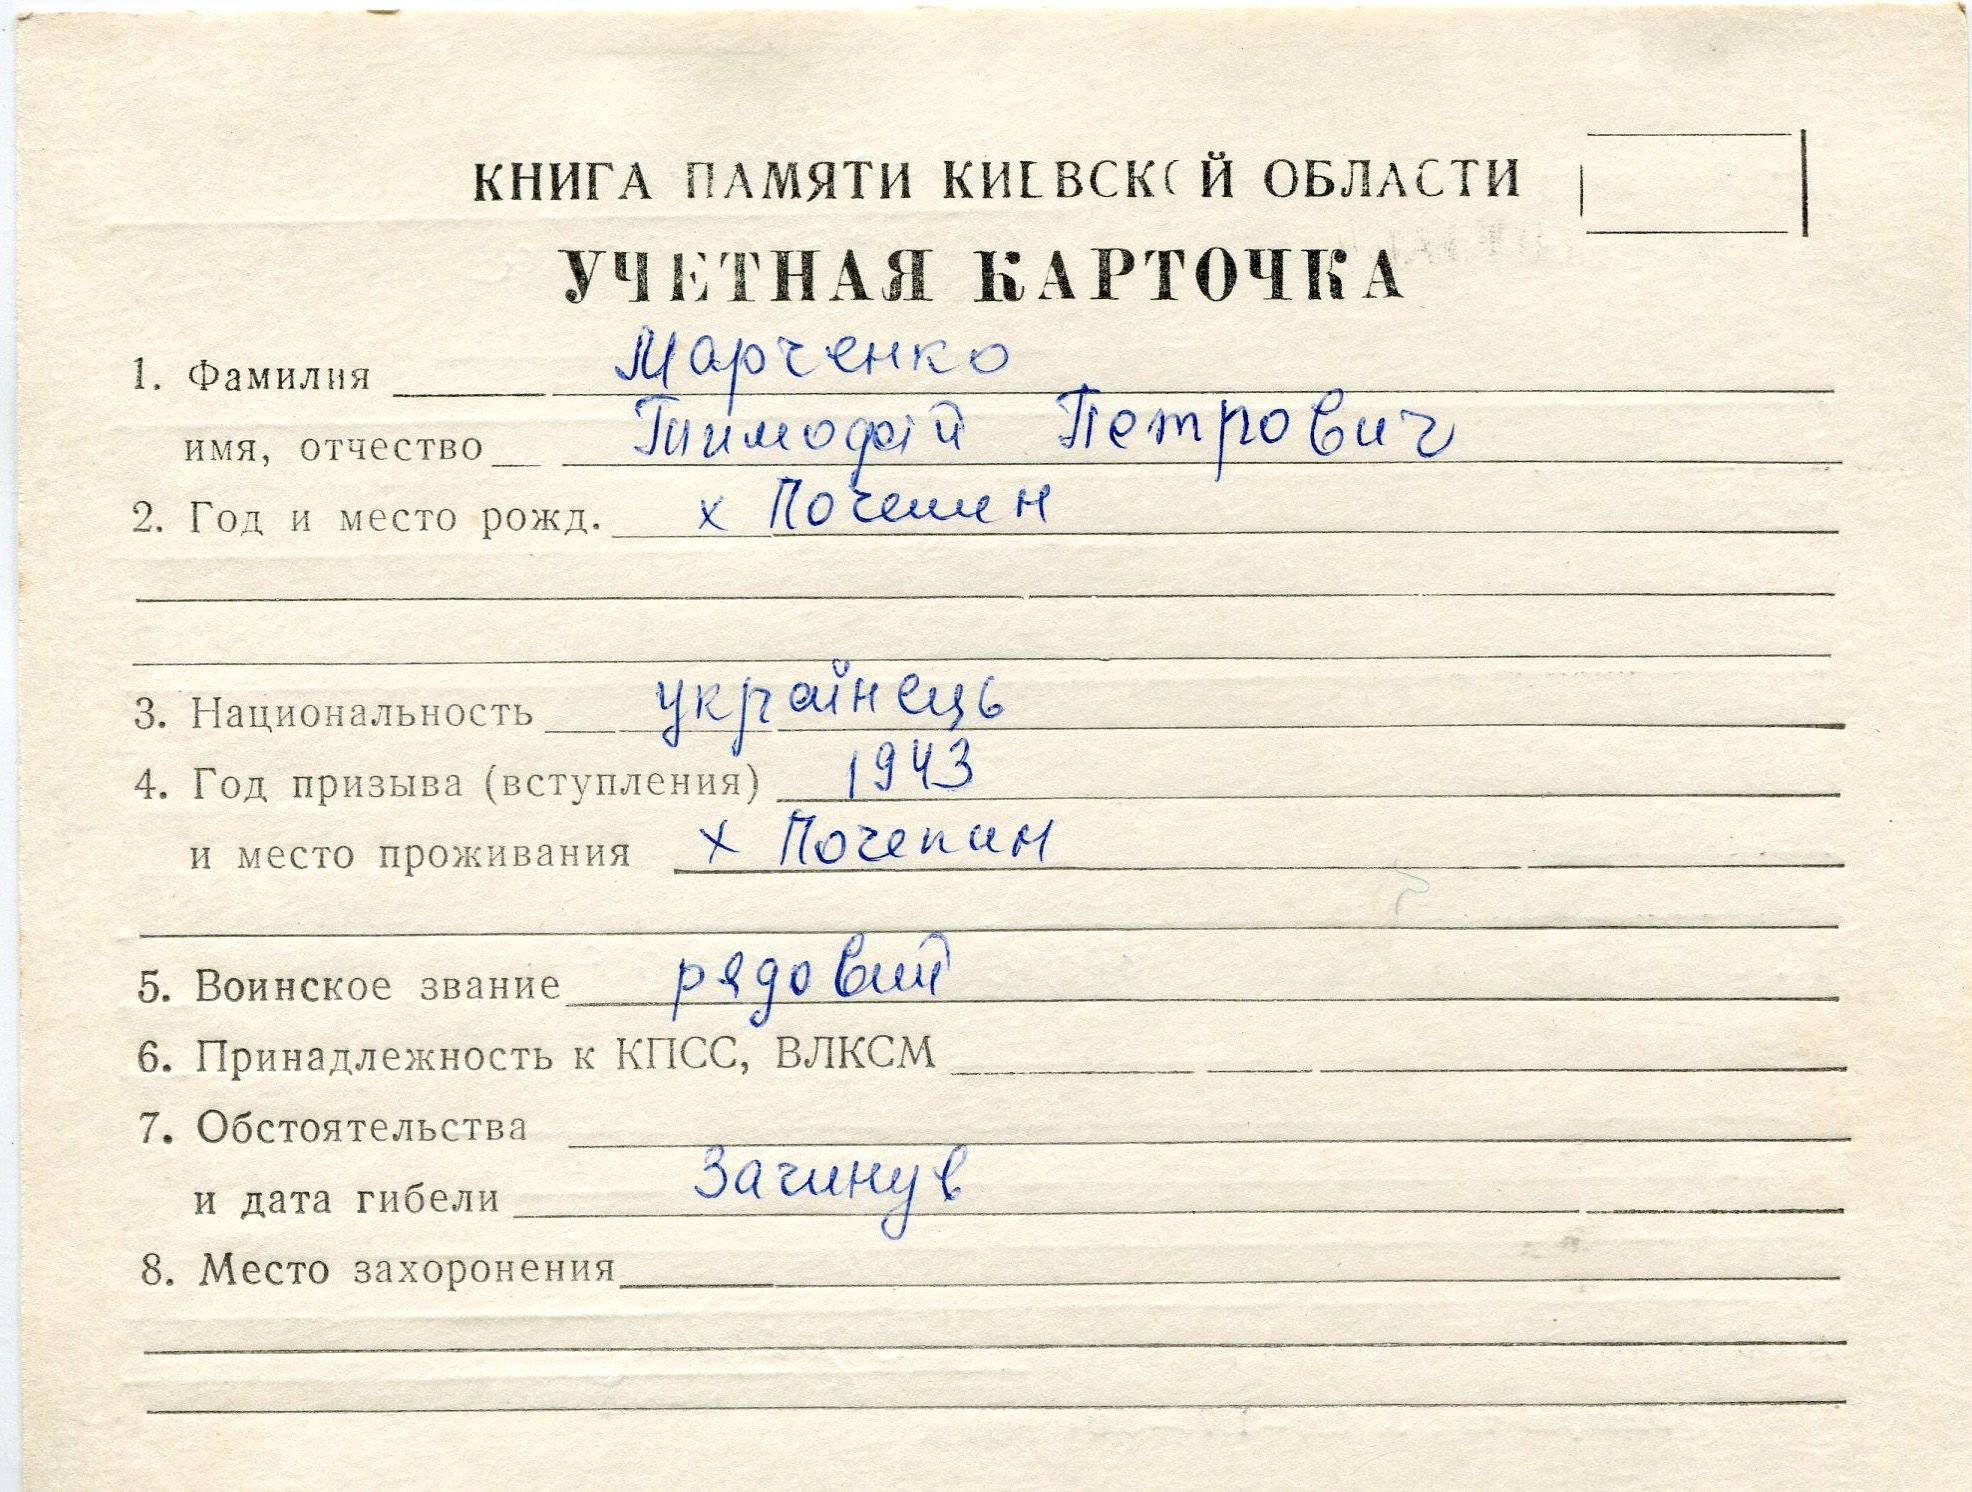 КНИГА ПАМЯТИ КИЕВСКОЙ ОБЛАСТИ
УЧЕТНАЯ КАРТОЧКА
1. Фамилия Марченко
имя, отчество Тимофій Петрович
2. Год и место рожд. х Почепин
3. Национальность українець
4. Год призыва (вступления) 1943
и место проживания х Почепин
5. Воинское звание рядовий
6. Принадлежность к КПСС, ВЛКСМ
7. Обстоятельства
и дата гибели Загинув
8. Место захоронения